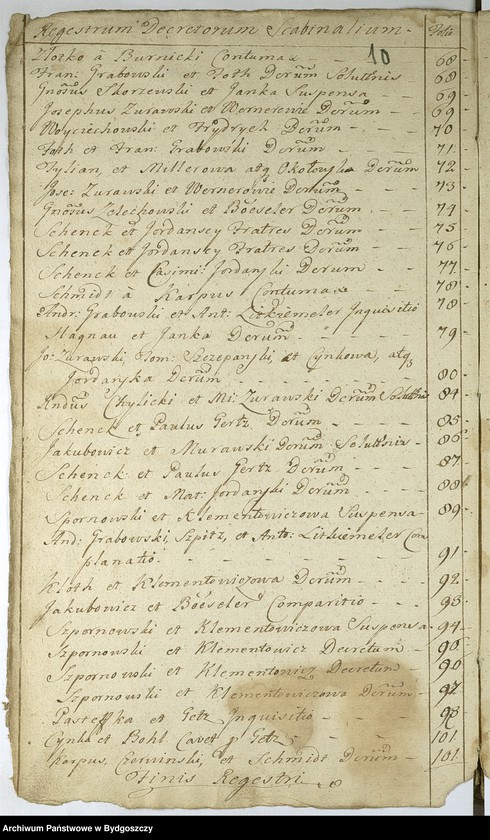 Regestrum Decretorum Scabinalium. Folio
10
Złotko à Burnicki Contumax 68
Fran: Grabowski et Foth Derum Soluttnis 68
Gnosus Skorzewski et Janka Suspensa 69
Josephus Zurawski et Wernerowie Derum 69
Woyciechowski et Frydrych Derum 70
Foth et Fran: Grabowski Derum 71
Tylian, et Millerowa atq Derum 72
Jose: Zurawski et Wernerowie Derum 73
Gnosus Zelechowski et Böeseler Derum 74
Schenck et Jordansey Fratres Derum 75
Schenck et Jordansky Fratres Derum 76
Schenck et Casimi: Jordanski Derum 77
Schmidt à Karpus Contumax 78
Andr: Grabowski et Ant: Litkiemeler Inquisitio 78
Hagnau et Janka Derum 79
Jo: Zurawski, Tom: Szczepanski, et Cynkowa, atq
Jordanska Derum 80
Andus Chylicki et Mi: Zurawski Derum Soluttnis 84
Schenck et Paulus Gertz Derum 85
Jakubowicz et Murawski Derum Soluttnis 86
Schenck et Paulus Gertz Derum 87
Schenck et Mat: Jordanski Derum 88
Spornowski et Klementowiczowa Suspensa 89
And: Grabowski, Szpitz, et Anto: Litkiemeler Com
planatio 91
Kloth et Klementowiczowa Derum 92
Jakubowicz et Böeseler Comparitio 93
Szpornowski et Klementowiczowa Suspensa 94
Szpornowski et Klementowicz Decretum 90
Szpornowski et Klementowicz Decretum 90
Szpornowski et Klementowiczowa Derum 97
Pasteffka et Getz Inquisitio 98
Cynka et Bohl Cavet p Getz 101
Karpus, Czerwinski, et Schmidt Derum 101
Finis Regestri
Archiwum Państwowe w Bydgoszczy